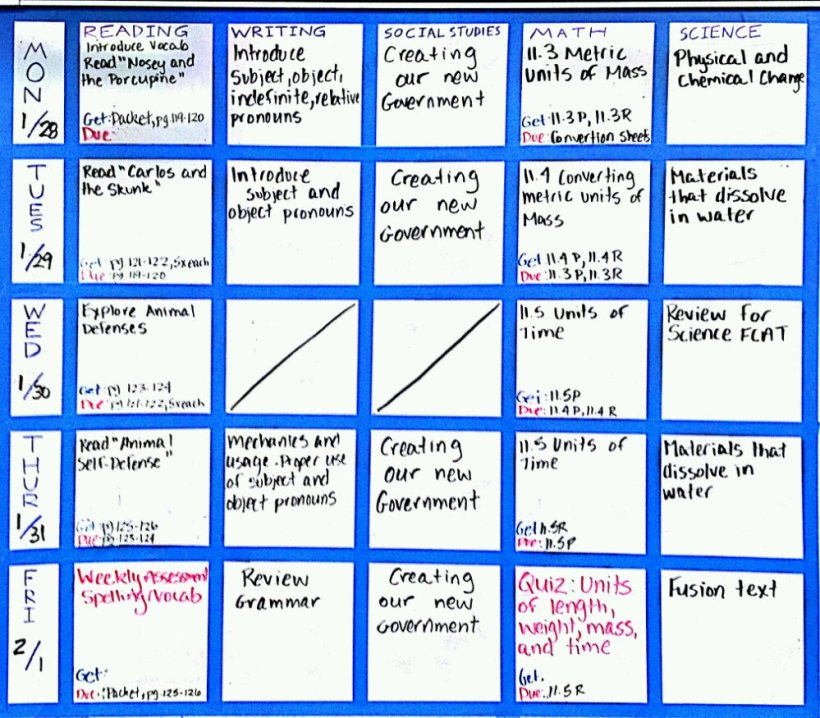 READING
WRITING
SOCIAL STUDIES
MATH
SCIENCE
MON
1/28
Introduce Vocab
Read "Nosey and
the Porcupine"
Get: Packet, pg. 119-120
Due:
Introduce
Subject, object,
indefinite, relative
pronouns
Creating
our new
Government
11.3 Metric
Units of Mass
Get: 11.3 P, 11.3R
Due: Convertion Sheets
Physical and
Chemical Change
TUES
1/29
Read "Carlos and
the Skunk"
Get: pg 121-122, 5x each
Due: pg 119-120
Introduce
subject and
object pronouns
Creating
our new
Government
11.4 Converting
metric units of
Mass
Get 11.4 P, 11.4 R
Due: 11.3 P, 11.3 R
Materials
that dissolve
in water
WED
1/30
Explore Animal
Defenses
Get: pg 123-124
Due: pg 121-122, 5x each
11.5 Units of
Time
Get: 11.5P
Due: 11.4 P, 11.4 R
Review for
Science FCAT
THUR
1/31
Read "Animal
Self-Defense"
Get: pg 125-126
Due: pg 123-124
Mechanics and
usage. Proper use
of subject and
object pronouns
Creating
our new
Government
11.5 Units of
Time
Get 11.5R
Due: 11.5P
Materials that
dissolve in
water
FRI
2/1
Weekly Assessment
Spelling/Vocab
Get:
Due: Packet, pg. 125-126
Review
Grammar
Creating
our new
Government
Quiz: Units
of length,
weight, mass,
and time
Get.
Due: 11.5 R
Fusion text